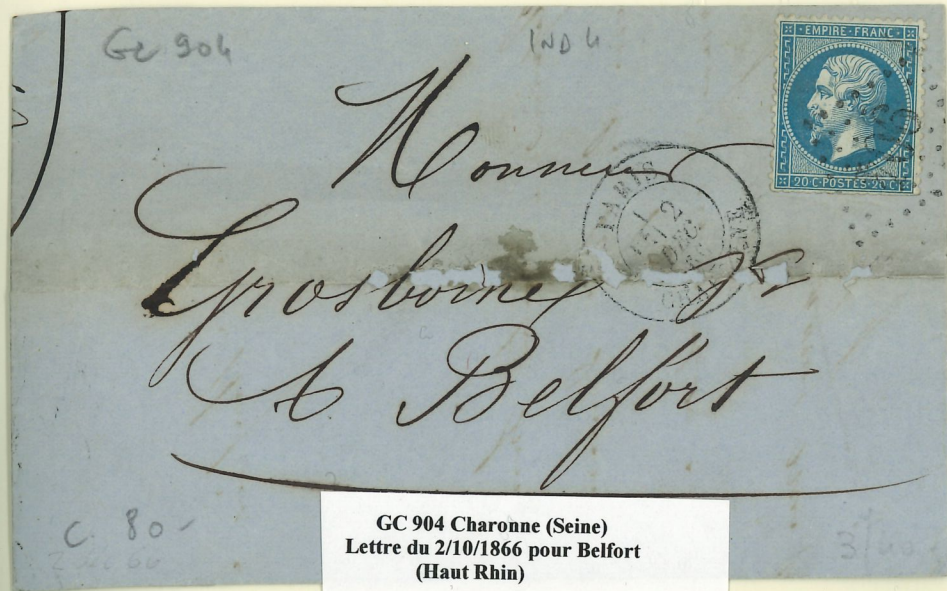 GC 904
IND 4
EMPIRE FRANC
20 C POSTES 20 C
Monsieur
PARIS
2
DÉC.
Grosborne Js
A Belfort
C. 80 -
GC 904 Charonne (Seine)
Lettre du 2/10/1866 pour Belfort
(Haut Rhin)